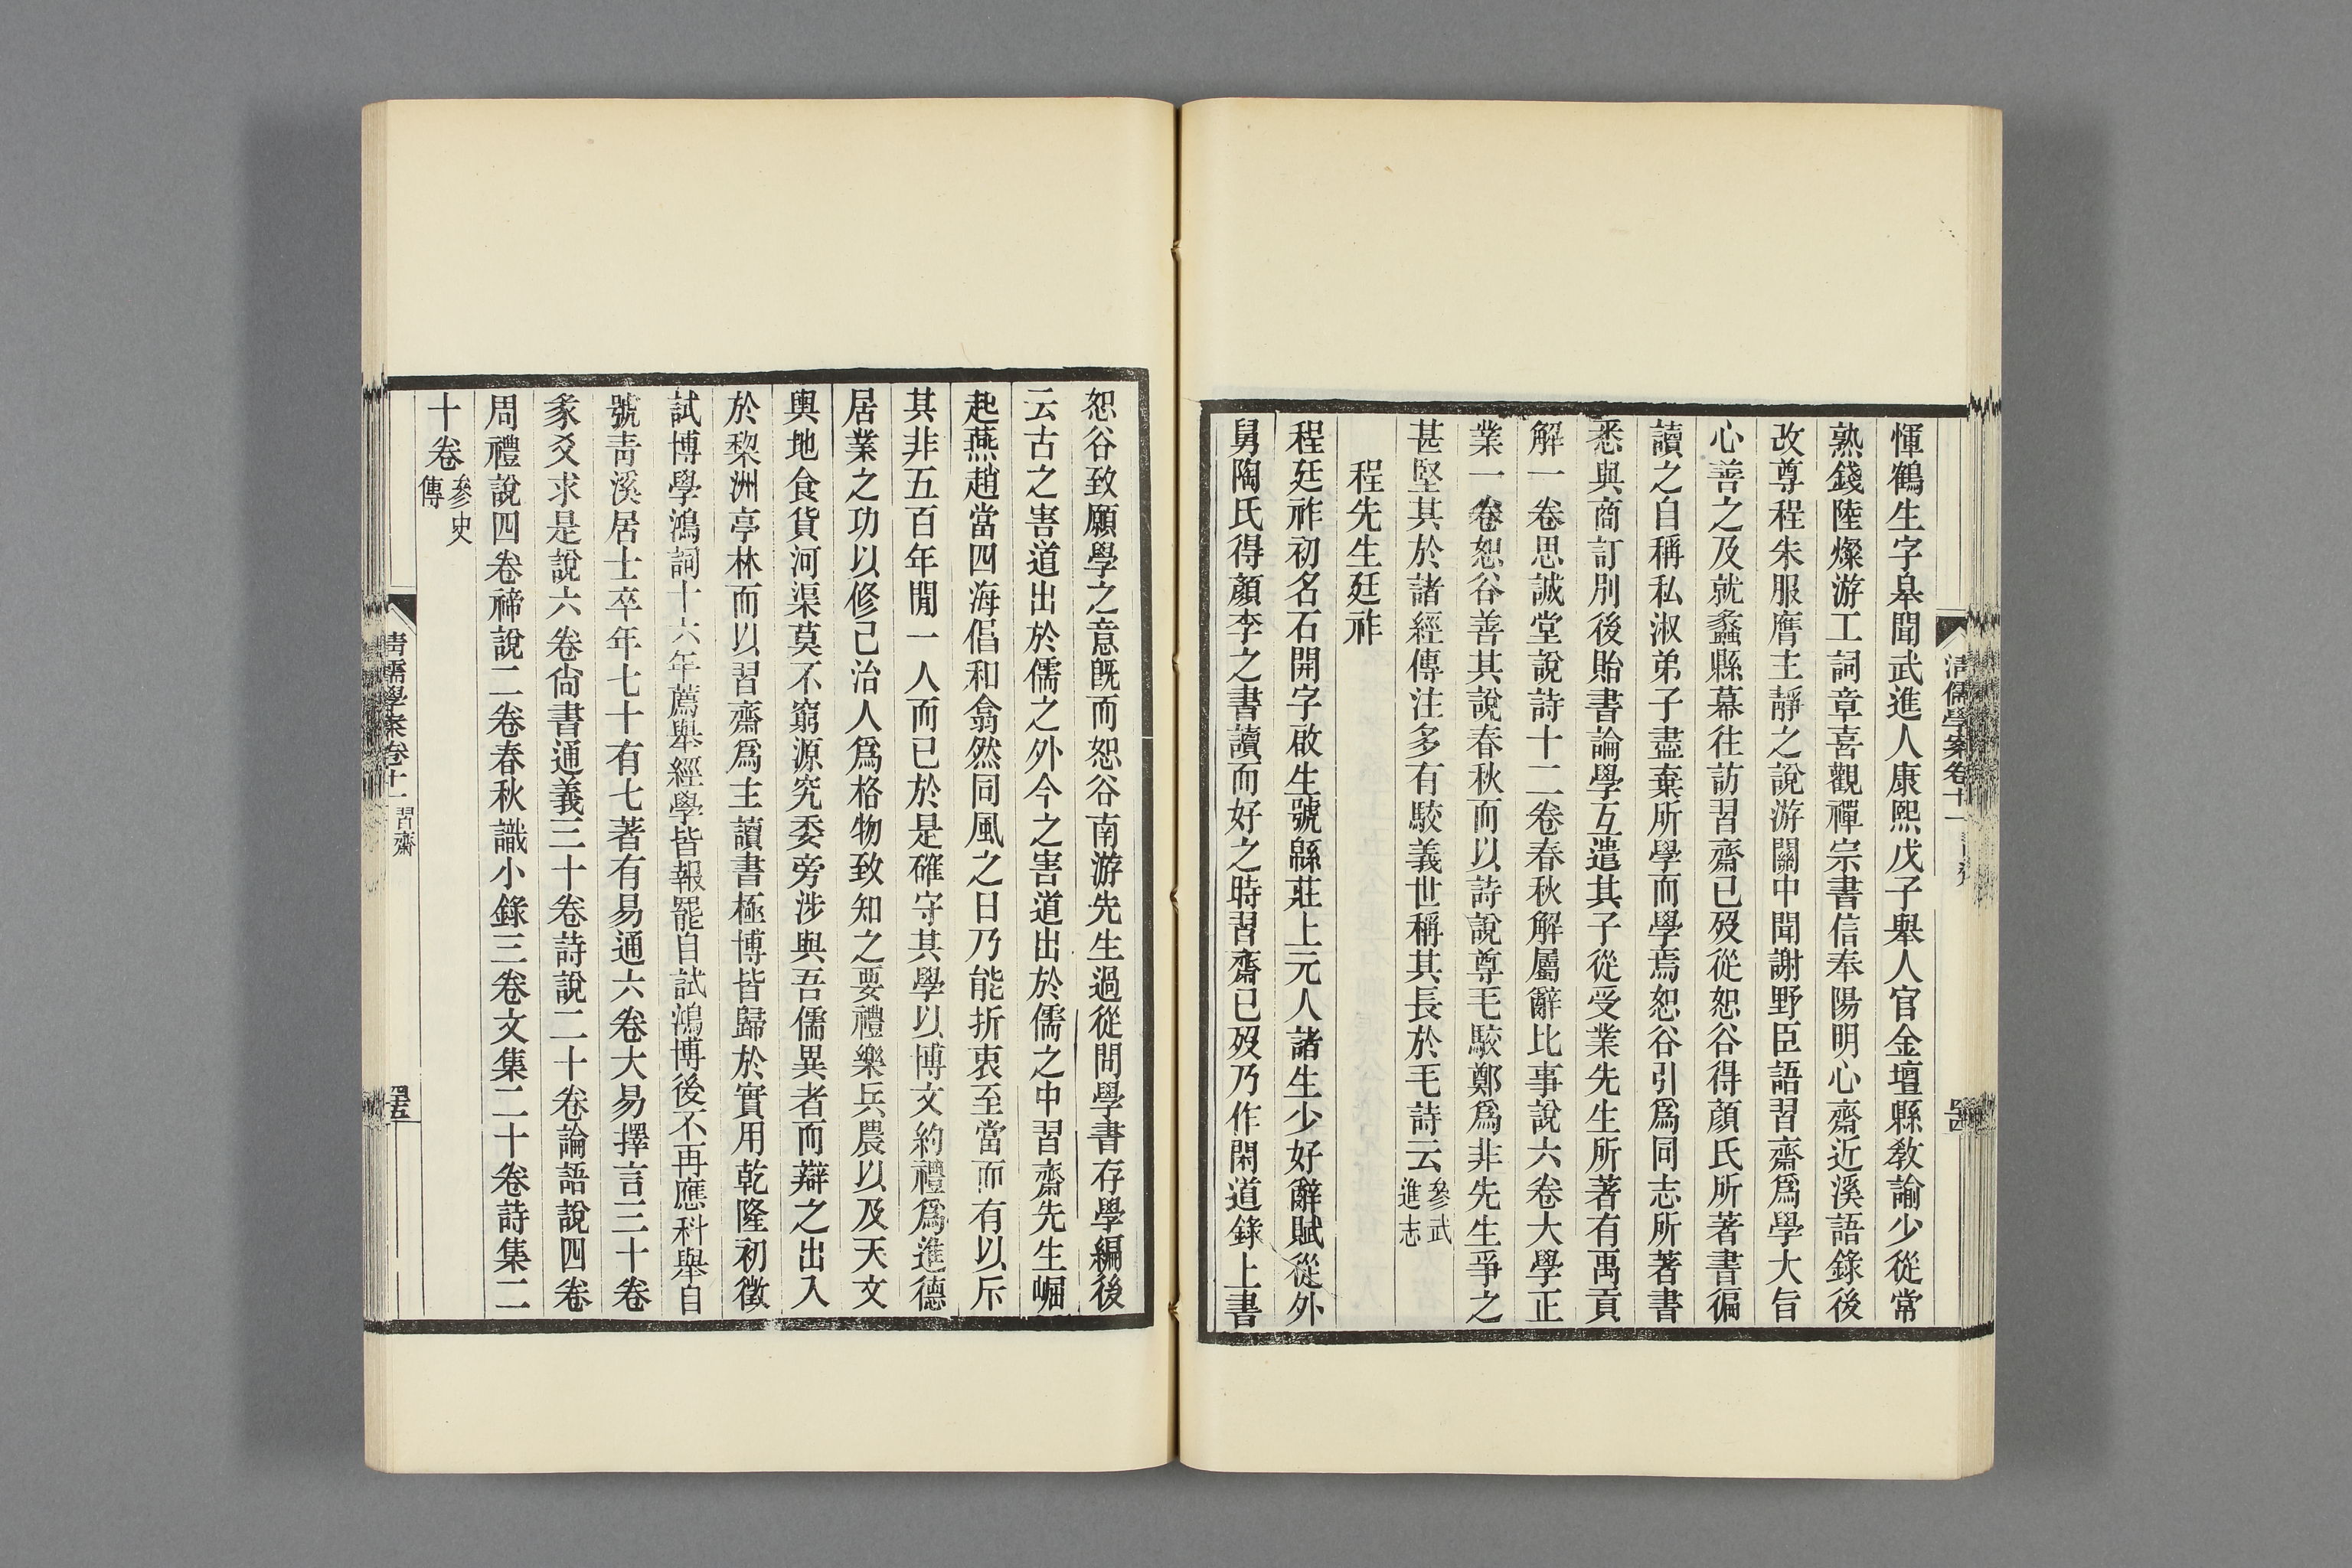 惲鶴生字皋聞武進人康熙戊子舉人官金壇縣敎諭少從常
熟錢陸燦游工詞章喜觀禪宗書信奉陽明心齋近溪語錄後
改尊程朱服膺主靜之說游關中聞謝野臣語習齋爲學大旨
心善之及就蠡縣幕往訪習齋已歿從恕谷得顏氏所著書徧
讀之自稱私淑弟子盡棄所學而學焉恕谷引爲同志所著書
悉與商訂別後貽書論學互遣其子從受業先生所著有禹貢
解一卷思誠堂說詩十二卷春秋解屬辭比事說六卷大學正
業一卷恕谷善其說春秋而以詩說尊毛駮鄭爲非先生爭之
甚堅其於諸經傳注多有駮義世稱其長於毛詩云參武
進志
程先生廷祚
程廷祚初名石開字啟生號緜莊上元人諸生少好辭賦從外
舅陶氏得顏李之書讀而好之時習齋已歿乃作閑道錄上書
清儒學案卷十一
恕谷致願學之意旣而恕谷南游先生過從問學書存學編後
云古之害道出於儒之外今之害道出於儒之中習齋先生崛
起燕趙當四海倡和翕然同風之日乃能折衷至當而有以斥
其非五百年閒一人而已於是確守其學以博文約禮爲進德
居業之功以修己治人爲格物致知之要禮樂兵農以及天文
輿地食貨河渠莫不窮源究委旁涉與吾儒異者而辯之出入
於黎洲亭林而以習齋爲主讀書極博皆歸於實用乾隆初徵
試博學鴻詞十六年薦舉經學皆報罷自試鴻博後不再應科舉自
號靑溪居士卒年七十有七著有易通六卷大易擇言三十卷
彖爻求是說六卷尙書通義三十卷詩說二十卷論語說四卷
周禮說四卷禘說二卷春秋識小錄三卷文集二十卷詩集二
十卷參史
傳
清儒學案卷十一 習齋 四五